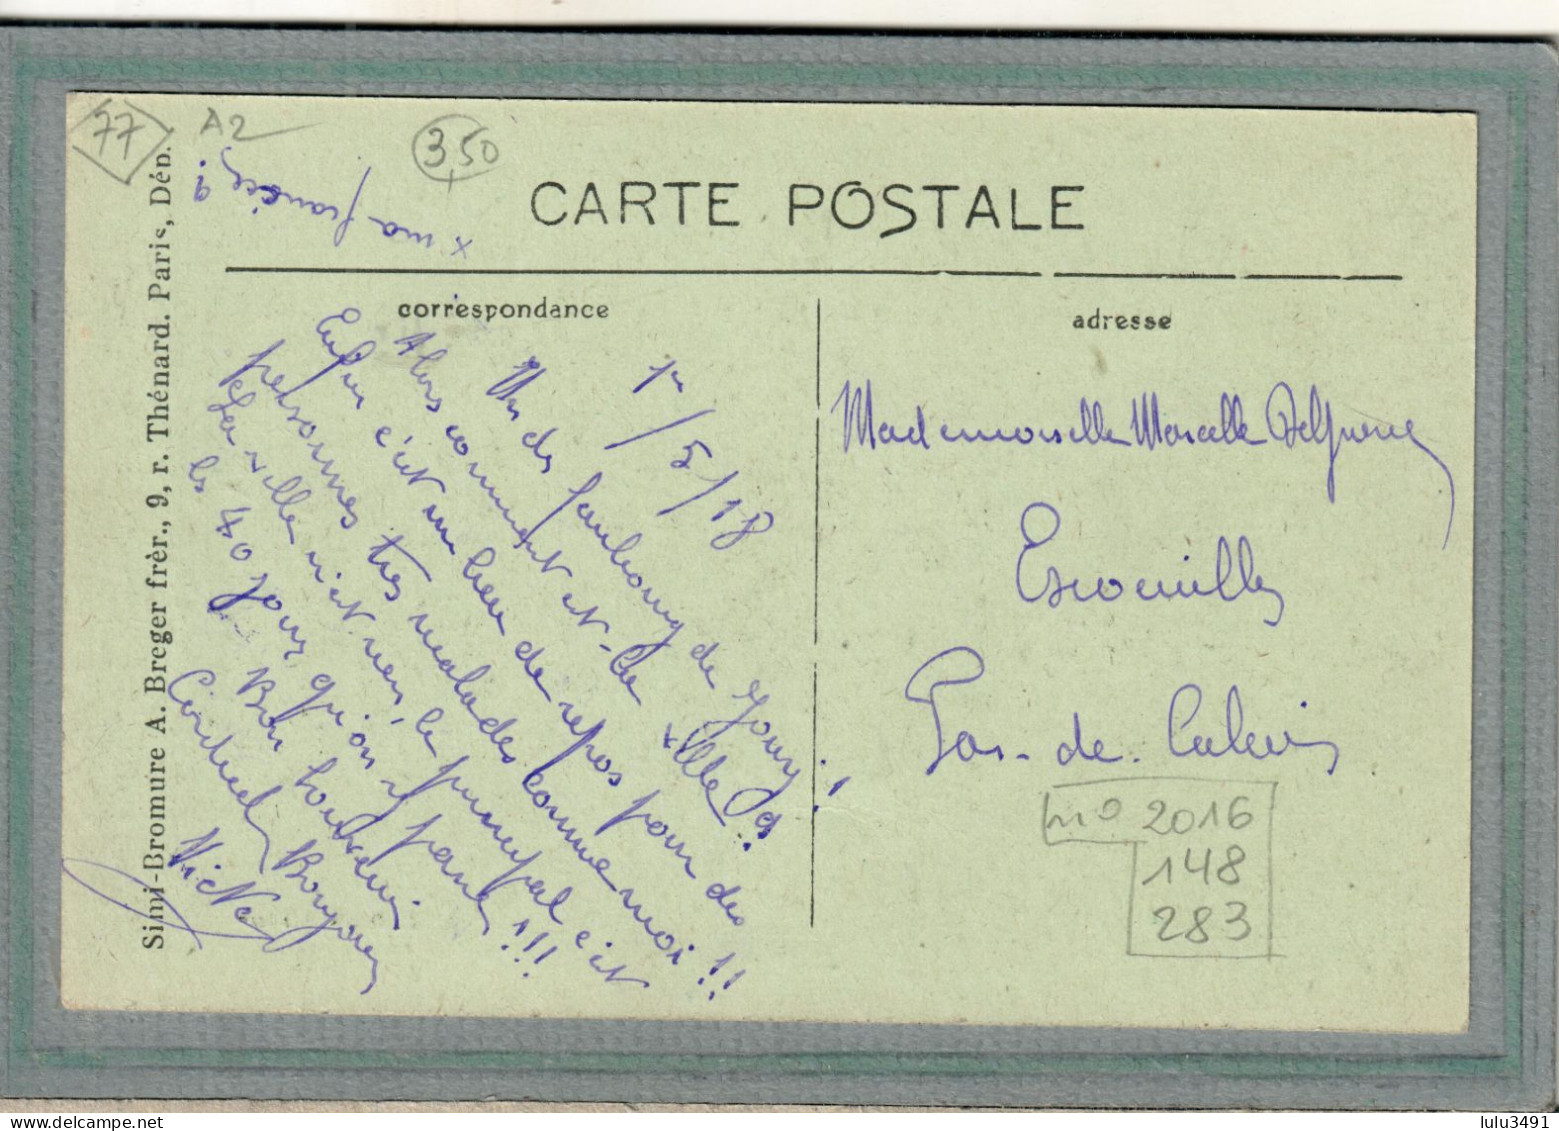 77
A2
3,50
x ma française ?
CARTE POSTALE
correspondance
adresse
1er/5/18
Un des faubourg de Jouy !
Alors comment est-le ville ??
Enfin c'est un lieu de repos pour des
personnes très malades comme moi !!
La ville n'est rien, le principal c'est
les 40 jours qu'on y passe !!!
Bon
Cordiel Bonjour
Victor
Mademoiselle Marcelle
Escouilles
Pas-de-Calais
no 2016
148
283
Simi-Bromure A. Breger frèr., 9, r. Thénard. Paris, Dép.
lulu3491